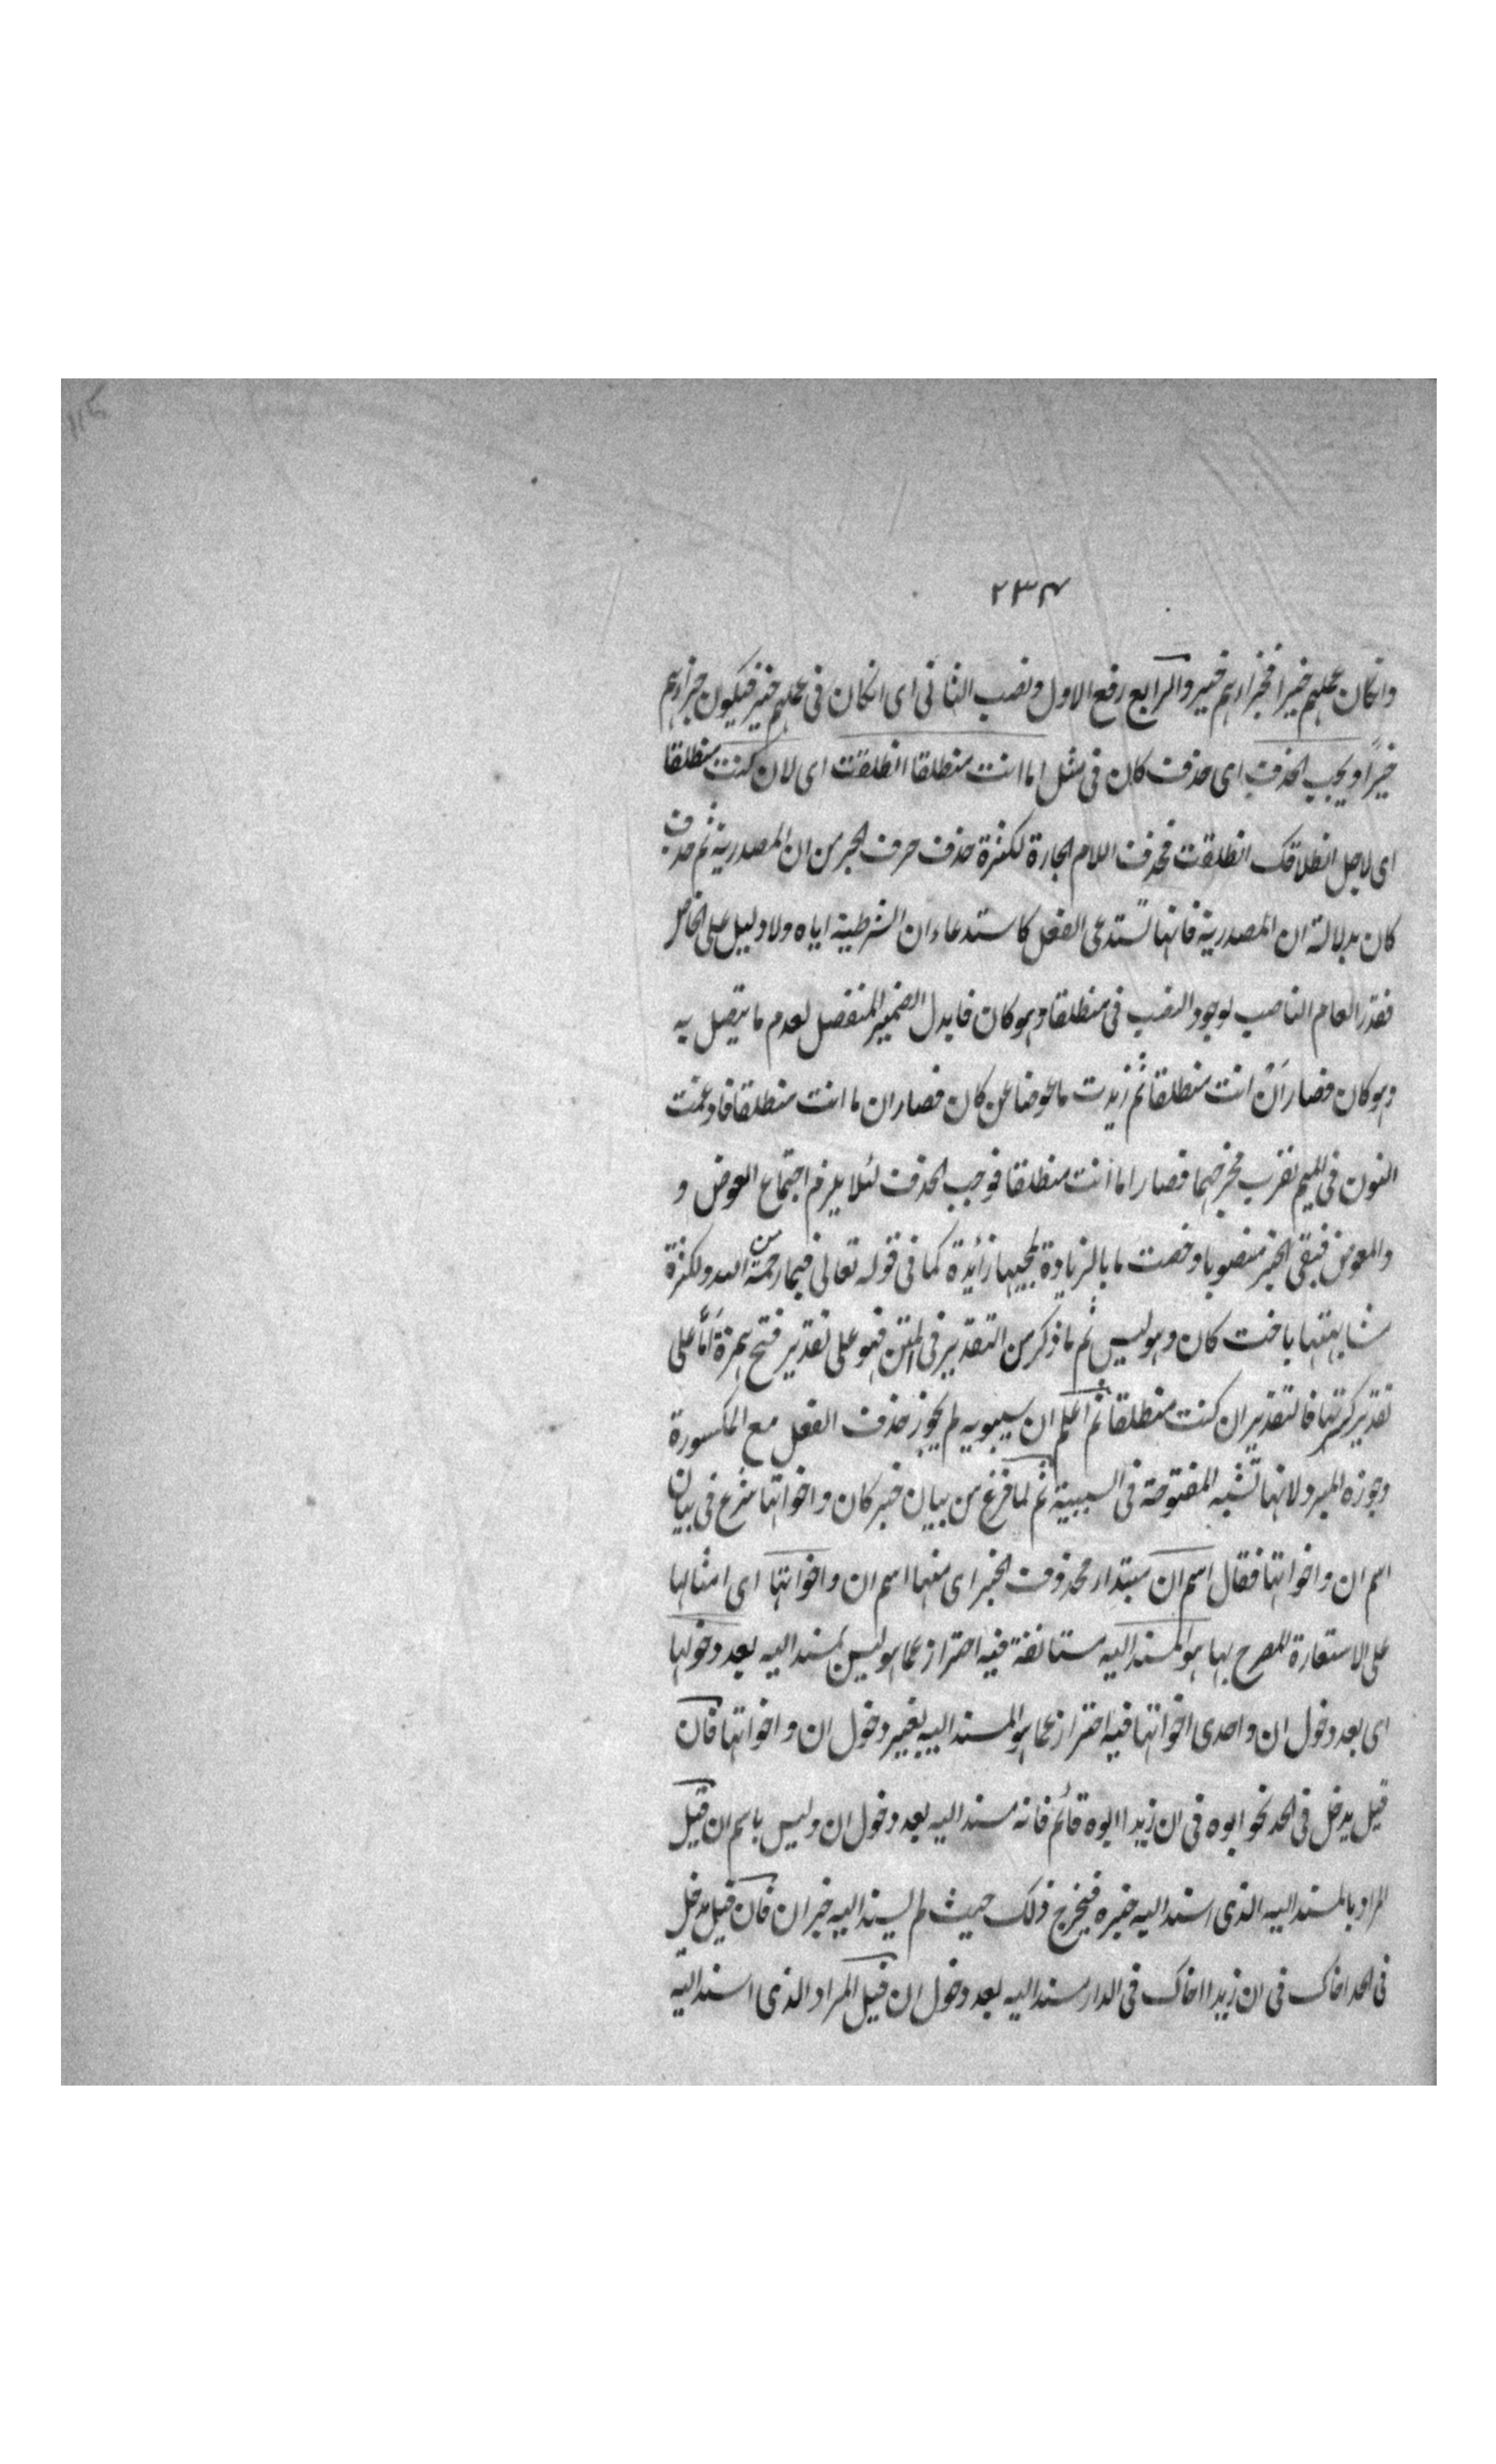 ٢٣٤
وانكان عملهم خيرا فجزاءهم خير والرابع رفع الاول ونصب الثانى اى انكان فى عملهم خير فيكون جزاءهم
خيرًا ويجب الحذف اى حذف كان فى مثل اما انت منطلقا انطلقت اى لان كنت منطلقا
اى لاجل انطلاقك انطلقت فحذف اللام الجارة لكثرة حذف حرف الجر من ان المصدرية ثم حذف
كان بدلالة ان المصدرية فانها تستدعى الفعل كاستدعاء ان الشرطية اياه ولا دليل على الخاص
فقدر العام الناصب لوجود النصب فى منطلقا وهو كان فابدل الضمير المنفصل لعدم ما يتصل به
وهو كان فصار اَنْ انت منطلقا ثم زيدت ما عوضا عن كان فصار ان ما انت منطلقا فادغمت
النون فى الميم لقرب مخرجهما فصار اما انت منطلقا فوجب الحذف لئلا يلزم اجتماع العوض و
والمعوض فبقى الخبر منصوبا وخصت ما بالزيادة لمجيها زائدة كما فى قوله تعالى فبما رحمة من الله ولكثرة
مشابهتها باخت كان وهو ليس ثم ما ذكر من التقدير فى المتن فهو على تقدير فتح همزة اَمّا على
تقدير كسرتها فالتقدير ان كنت منطلقا ثم اعلم ان سيبويه لم يجوز حذف الفعل مع المكسورة
وجوزه المبرد لانها تشبه المفتوحة فى السببية ثم لما فرغ من بيان خبر كان واخواتها شرع فى بيان
اسم ان واخواتها فقال اسم ان مبتداء محذوف الخبر اى منها اسم ان واخواتها اى امثالها
على الاستعارة المصرح بها هو المسند اليه مستانفة فيه احتراز عما هو ليس بمسند اليه بعد دخولها
اى بعد دخول ان واحدى اخواتها فيه احتراز عما هو المسند اليه بغير دخول ان واخواتها فان
قيل يدخل فى الحد نحو ابوه فى ان زيدا ابوه قائم فانه مسند اليه بعد دخول ان وليس باسم ان قيل
المراد بالمسند اليه الذى اسند اليه خبره فيخرج ذلك حيث لم يسند اليه خبر ان فان قيل يدخل
فى الحد اخاك فى ان زيدا اخاك فى الدار مسند اليه بعد دخول ان قيل المراد الذى اسند اليه